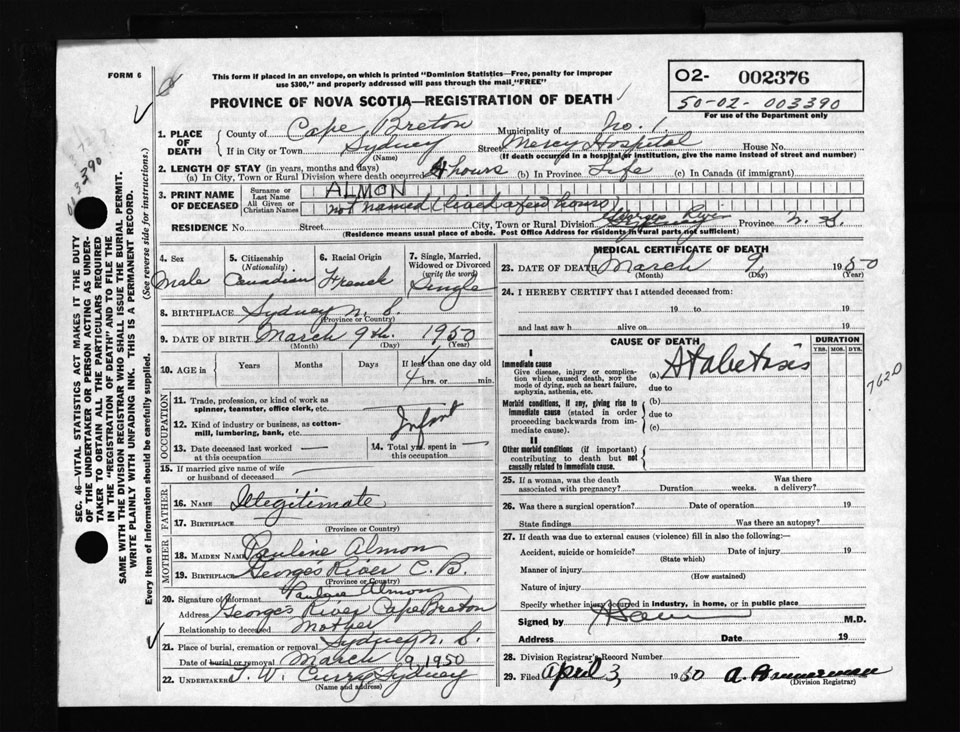 FORM 6
This form if placed in an envelope, on which is printed "Dominion Statistics—Free, penalty for improper
use $300," and properly addressed will pass through the mail "FREE"
O2- 002376
50-02-003390
For use of the Department only
PROVINCE OF NOVA SCOTIA—REGISTRATION OF DEATH
1. PLACE OF DEATH
County of Cape Breton Municipality of No. 1.
If in City or Town Sydney Street Mercy Hospital House No.
(Name) (If death occurred in a hospital or institution, give the name instead of street and number)
2. LENGTH OF STAY (in years, months and days)
(a) In City, Town or Rural Division where death occurred 4 hours (b) In Province Life (c) In Canada (if immigrant)
3. PRINT NAME OF DECEASED
Surname or Last Name ALMON
All Given or Christian Names not named (lived a few hours)
RESIDENCE No. Street City, Town or Rural Division Georges River Province N. S.
(Residence means usual place of abode. Post Office Address for residents in rural parts not sufficient)
4. Sex Male
5. Citizenship (Nationality) Canadian
6. Racial Origin French
7. Single, Married, Widowed or Divorced (write the word) Single
8. BIRTHPLACE Sydney N. S.
(Province or Country)
9. DATE OF BIRTH March 9th. 1950
(Month) (Day) (Year)
10. AGE in Years Months Days If less than one day old
4 hrs. or min.
OCCUPATION
11. Trade, profession, or kind of work as spinner, teamster, office clerk, etc.
12. Kind of industry or business, as cotton-mill, lumbering, bank, etc. Infant
13. Date deceased last worked at this occupation
14. Total yrs. spent in this occupation
15. If married give name of wife or husband of deceased
FATHER
16. NAME Illegitimate
17. BIRTHPLACE
(Province or Country)
MOTHER
18. MAIDEN NAME Pauline Almon
19. BIRTHPLACE Georges River C. B.
(Province or Country)
20. Signature of Informant Pauline Almon
Address Georges River Cape Breton
Relationship to deceased Mother
21. Place of burial, cremation or removal Sydney N. S.
Date of burial or removal March 9, 1950
22. UNDERTAKER T. W. Curry Sydney
(Name and address)
MEDICAL CERTIFICATE OF DEATH
23. DATE OF DEATH March 9, 1950
(Month) (Day) (Year)
24. I HEREBY CERTIFY that I attended deceased from:
19 to 19
and last saw h alive on 19
CAUSE OF DEATH
DURATION
YRS. MOS. DYS.
I
Immediate cause
Give disease, injury or complication which caused death, NOT the mode of dying, such as heart failure, asphyxia, asthenia, etc.
(a) Atalectosis
due to
7620
Morbid conditions, if any, giving rise to immediate cause (stated in order proceeding backwards from immediate cause).
(b)
due to
(c)
II
Other morbid conditions (if important) contributing to death but not causally related to immediate cause.
25. If a woman, was the death associated with pregnancy? Duration weeks. Was there a delivery?
26. Was there a surgical operation? Date of operation 19
State findings Was there an autopsy?
27. If death was due to external causes (violence) fill in also the following:—
Accident, suicide or homicide? Date of injury 19
(State which)
Manner of injury
(How sustained)
Nature of injury
Specify whether injury occurred in industry, in home, or in public place
Signed by M.D.
Address Date 19
28. Division Registrar's Record Number
29. Filed April 3, 1950
(Division Registrar)
SEC. 46—VITAL STATISTICS ACT MAKES IT THE DUTY
OF THE UNDERTAKER OR PERSON ACTING AS UNDER-
TAKER TO OBTAIN ALL THE PARTICULARS REQUIRED
IN THE "REGISTRATION OF DEATH" AND TO FILE THE
SAME WITH THE DIVISION REGISTRAR WHO SHALL ISSUE THE BURIAL PERMIT.
WRITE PLAINLY WITH UNFADING INK. THIS IS A PERMANENT RECORD.
Every item of information should be carefully supplied. (See reverse side for instructions.)